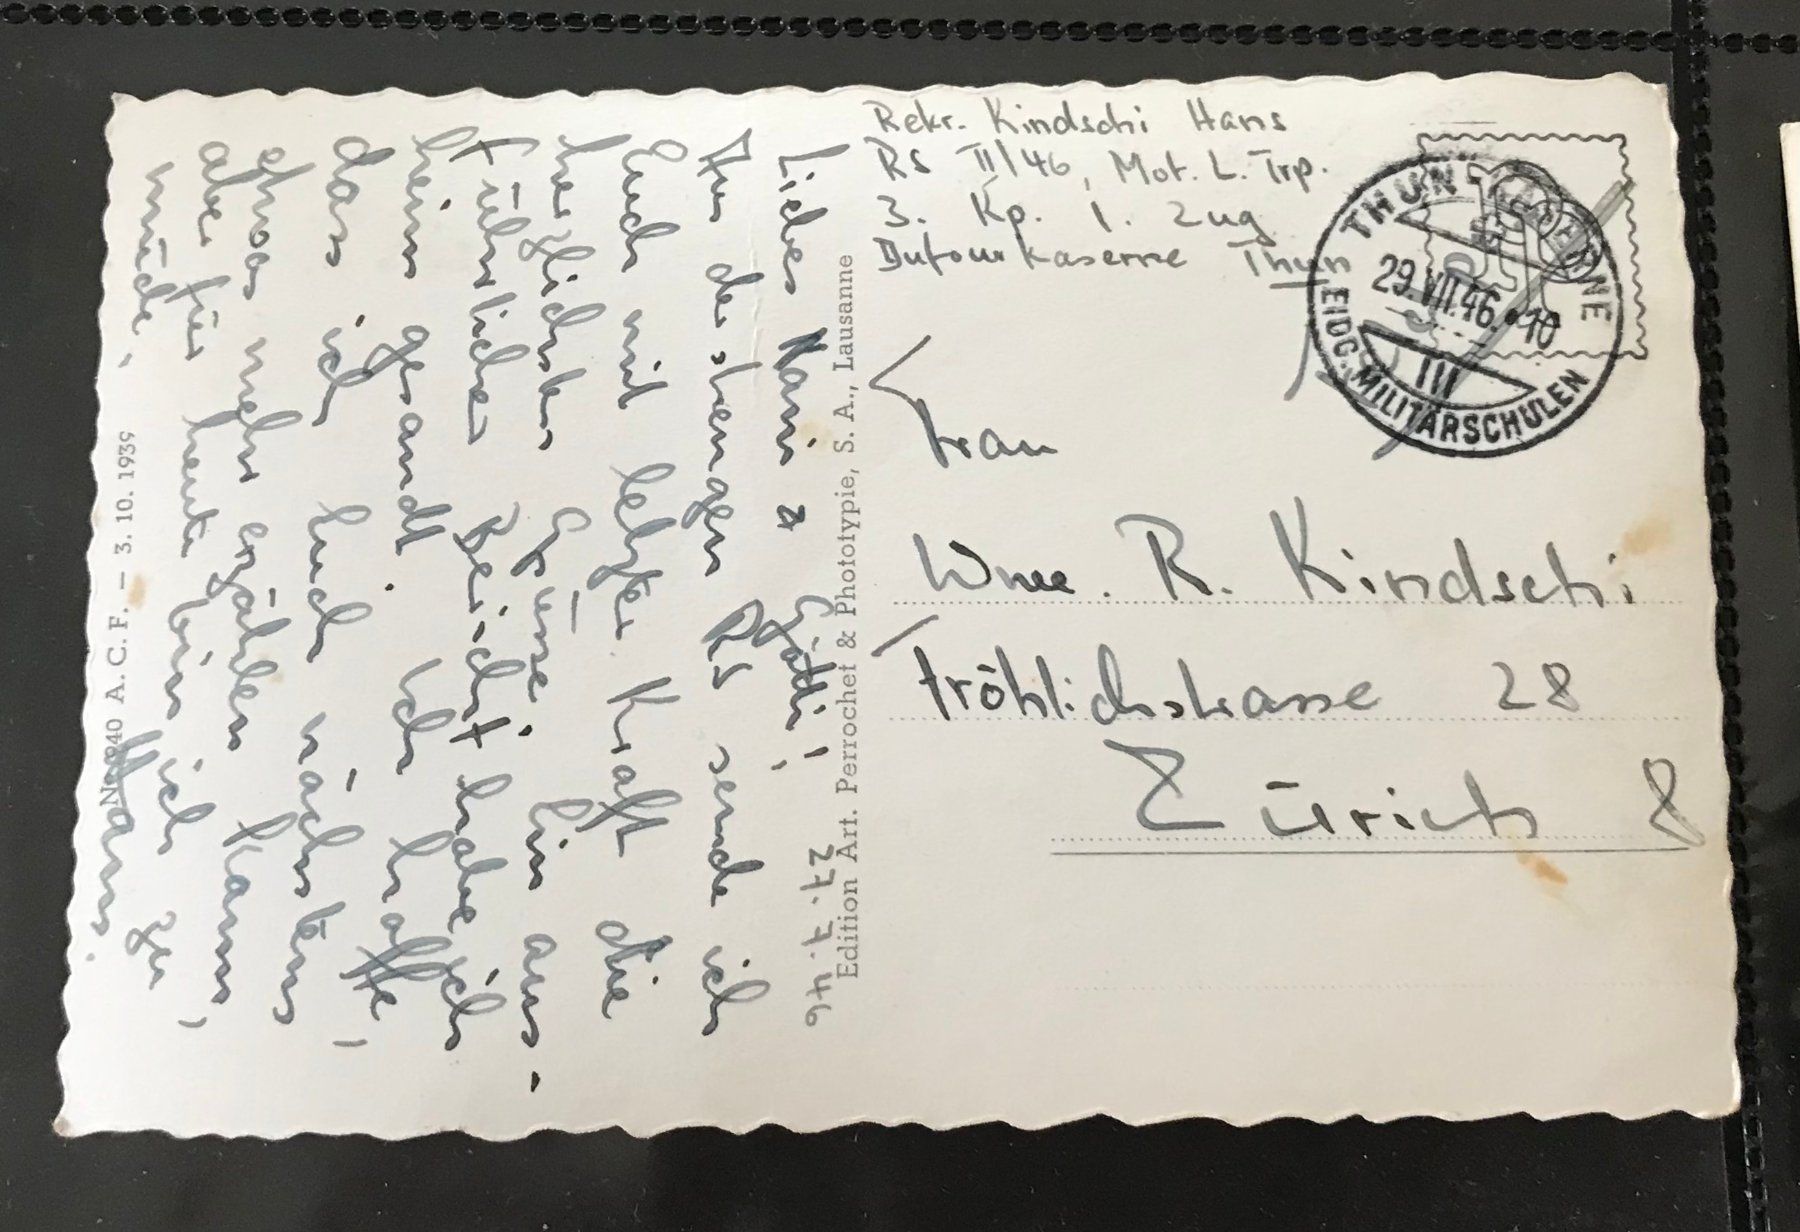 Rekr. Kindschi Hans
RS II/46, Mot. L. Trp.
3. Kp. 1. Zug
Dufourkaserne Thun
THUN KASERNE
29.VII.46.-10
III
EIDG. MILITÄRSCHULEN
Frau
Wwe. R. Kindschi
Fröhlichstrasse 28
Zürich 8
27.7.46
Liebes Nani & Götti!
Aus der strengen RS sende ich
Euch mit letzter Kraft die
herzlichsten Grüsse! Ein aus-
führlicher Bericht habe ich
heim gesandt. Ich hoffe,
dass ich Euch nächstens
etwas mehr erzählen kann,
aber für heute bin ich zu
müde.
Hans.
Edition Art. Perrochet & Phototypie, S. A., Lausanne
A. C. F. — 3. 10. 1939